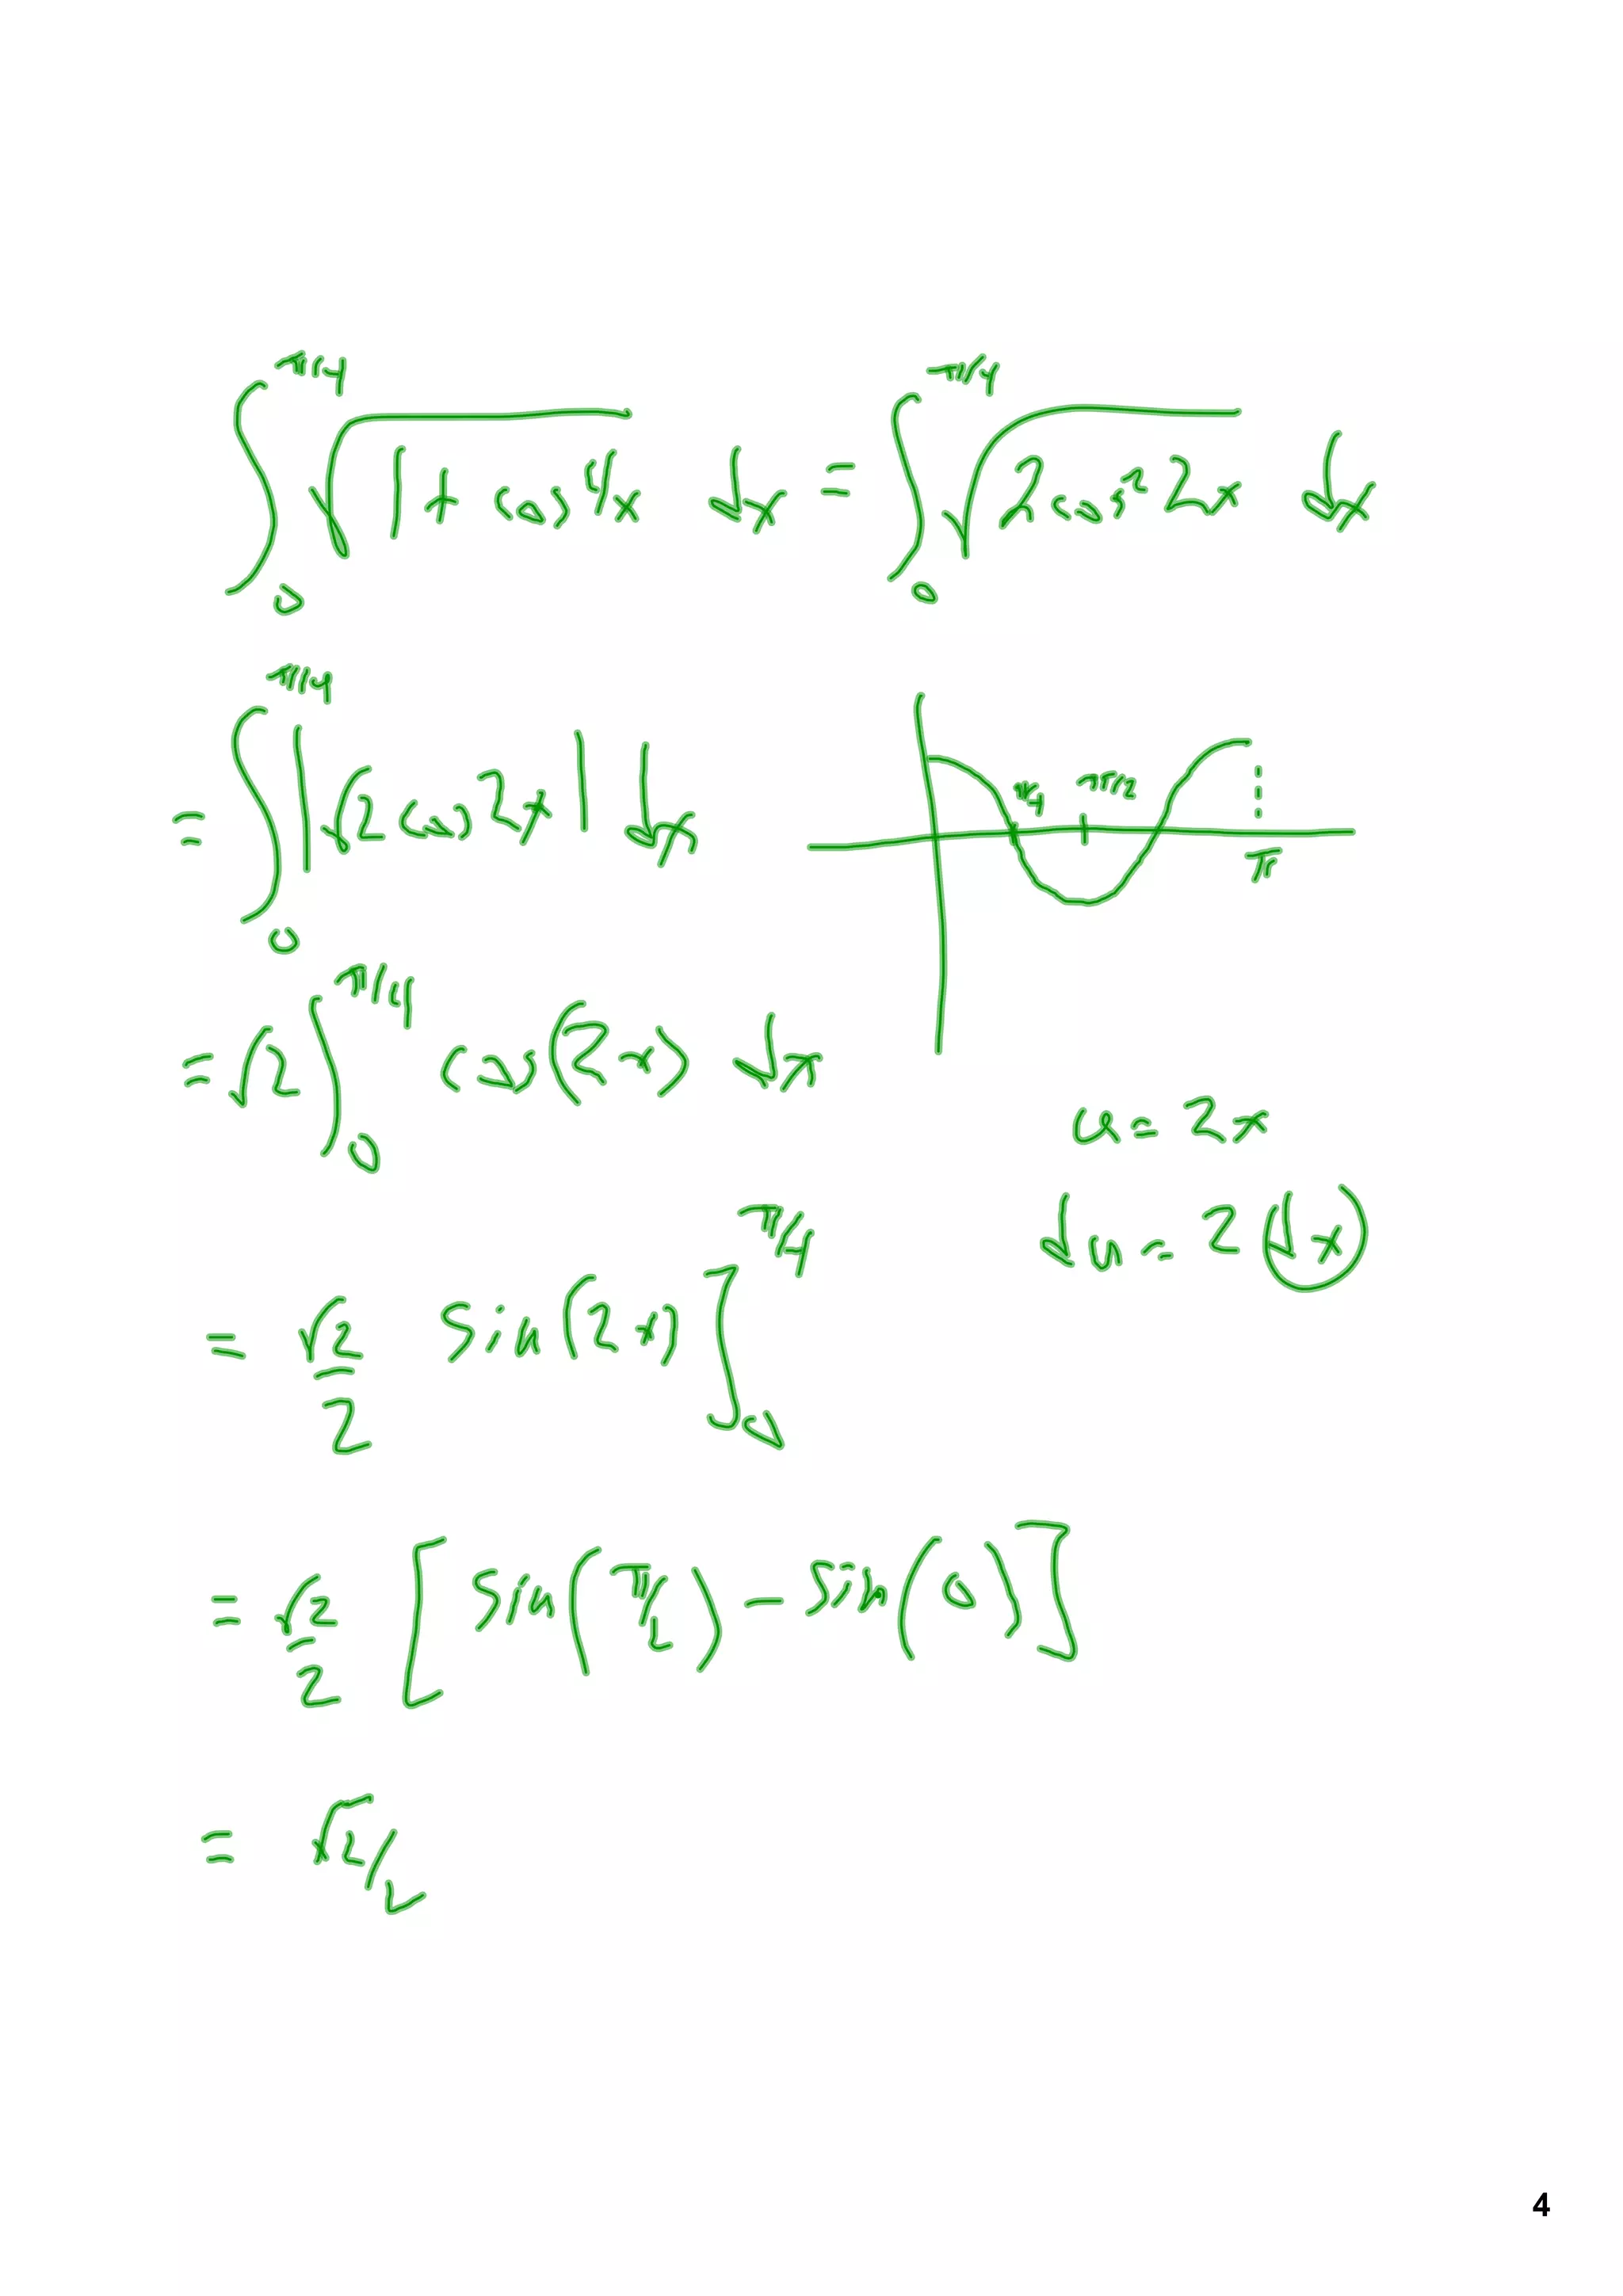 ∫₀^{π/4} √(1 + cos 4x) dx = ∫₀^{π/4} √(2cos² 2x) dx
= ∫₀^{π/4} |√2 cos 2x| dx
π/4 π/2 π
= √2 ∫₀^{π/4} cos(2x) dx
u = 2x
du = 2(dx)
= √2/2 sin(2x) ]₀^{π/4}
= √2/2 [sin(π/2) - sin(0)]
= √2/2
4